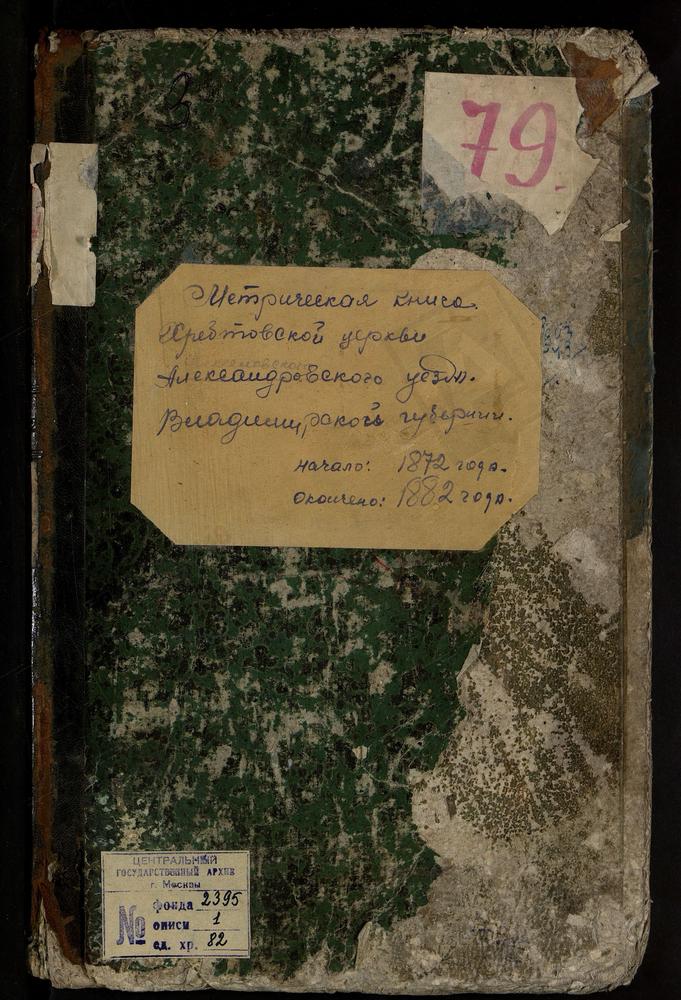 3
79.
Метрическая книга
Хребтовской церкви
Александровского уезда.
Владимирской губернии.
начало: 1872 года.
окончено: 1882 года.
ЦЕНТРАЛЬНЫЙ
ГОСУДАРСТВЕННЫЙ АРХИВ
г. Москвы
№
фонда 2395
описи 1
ед. хр. 82